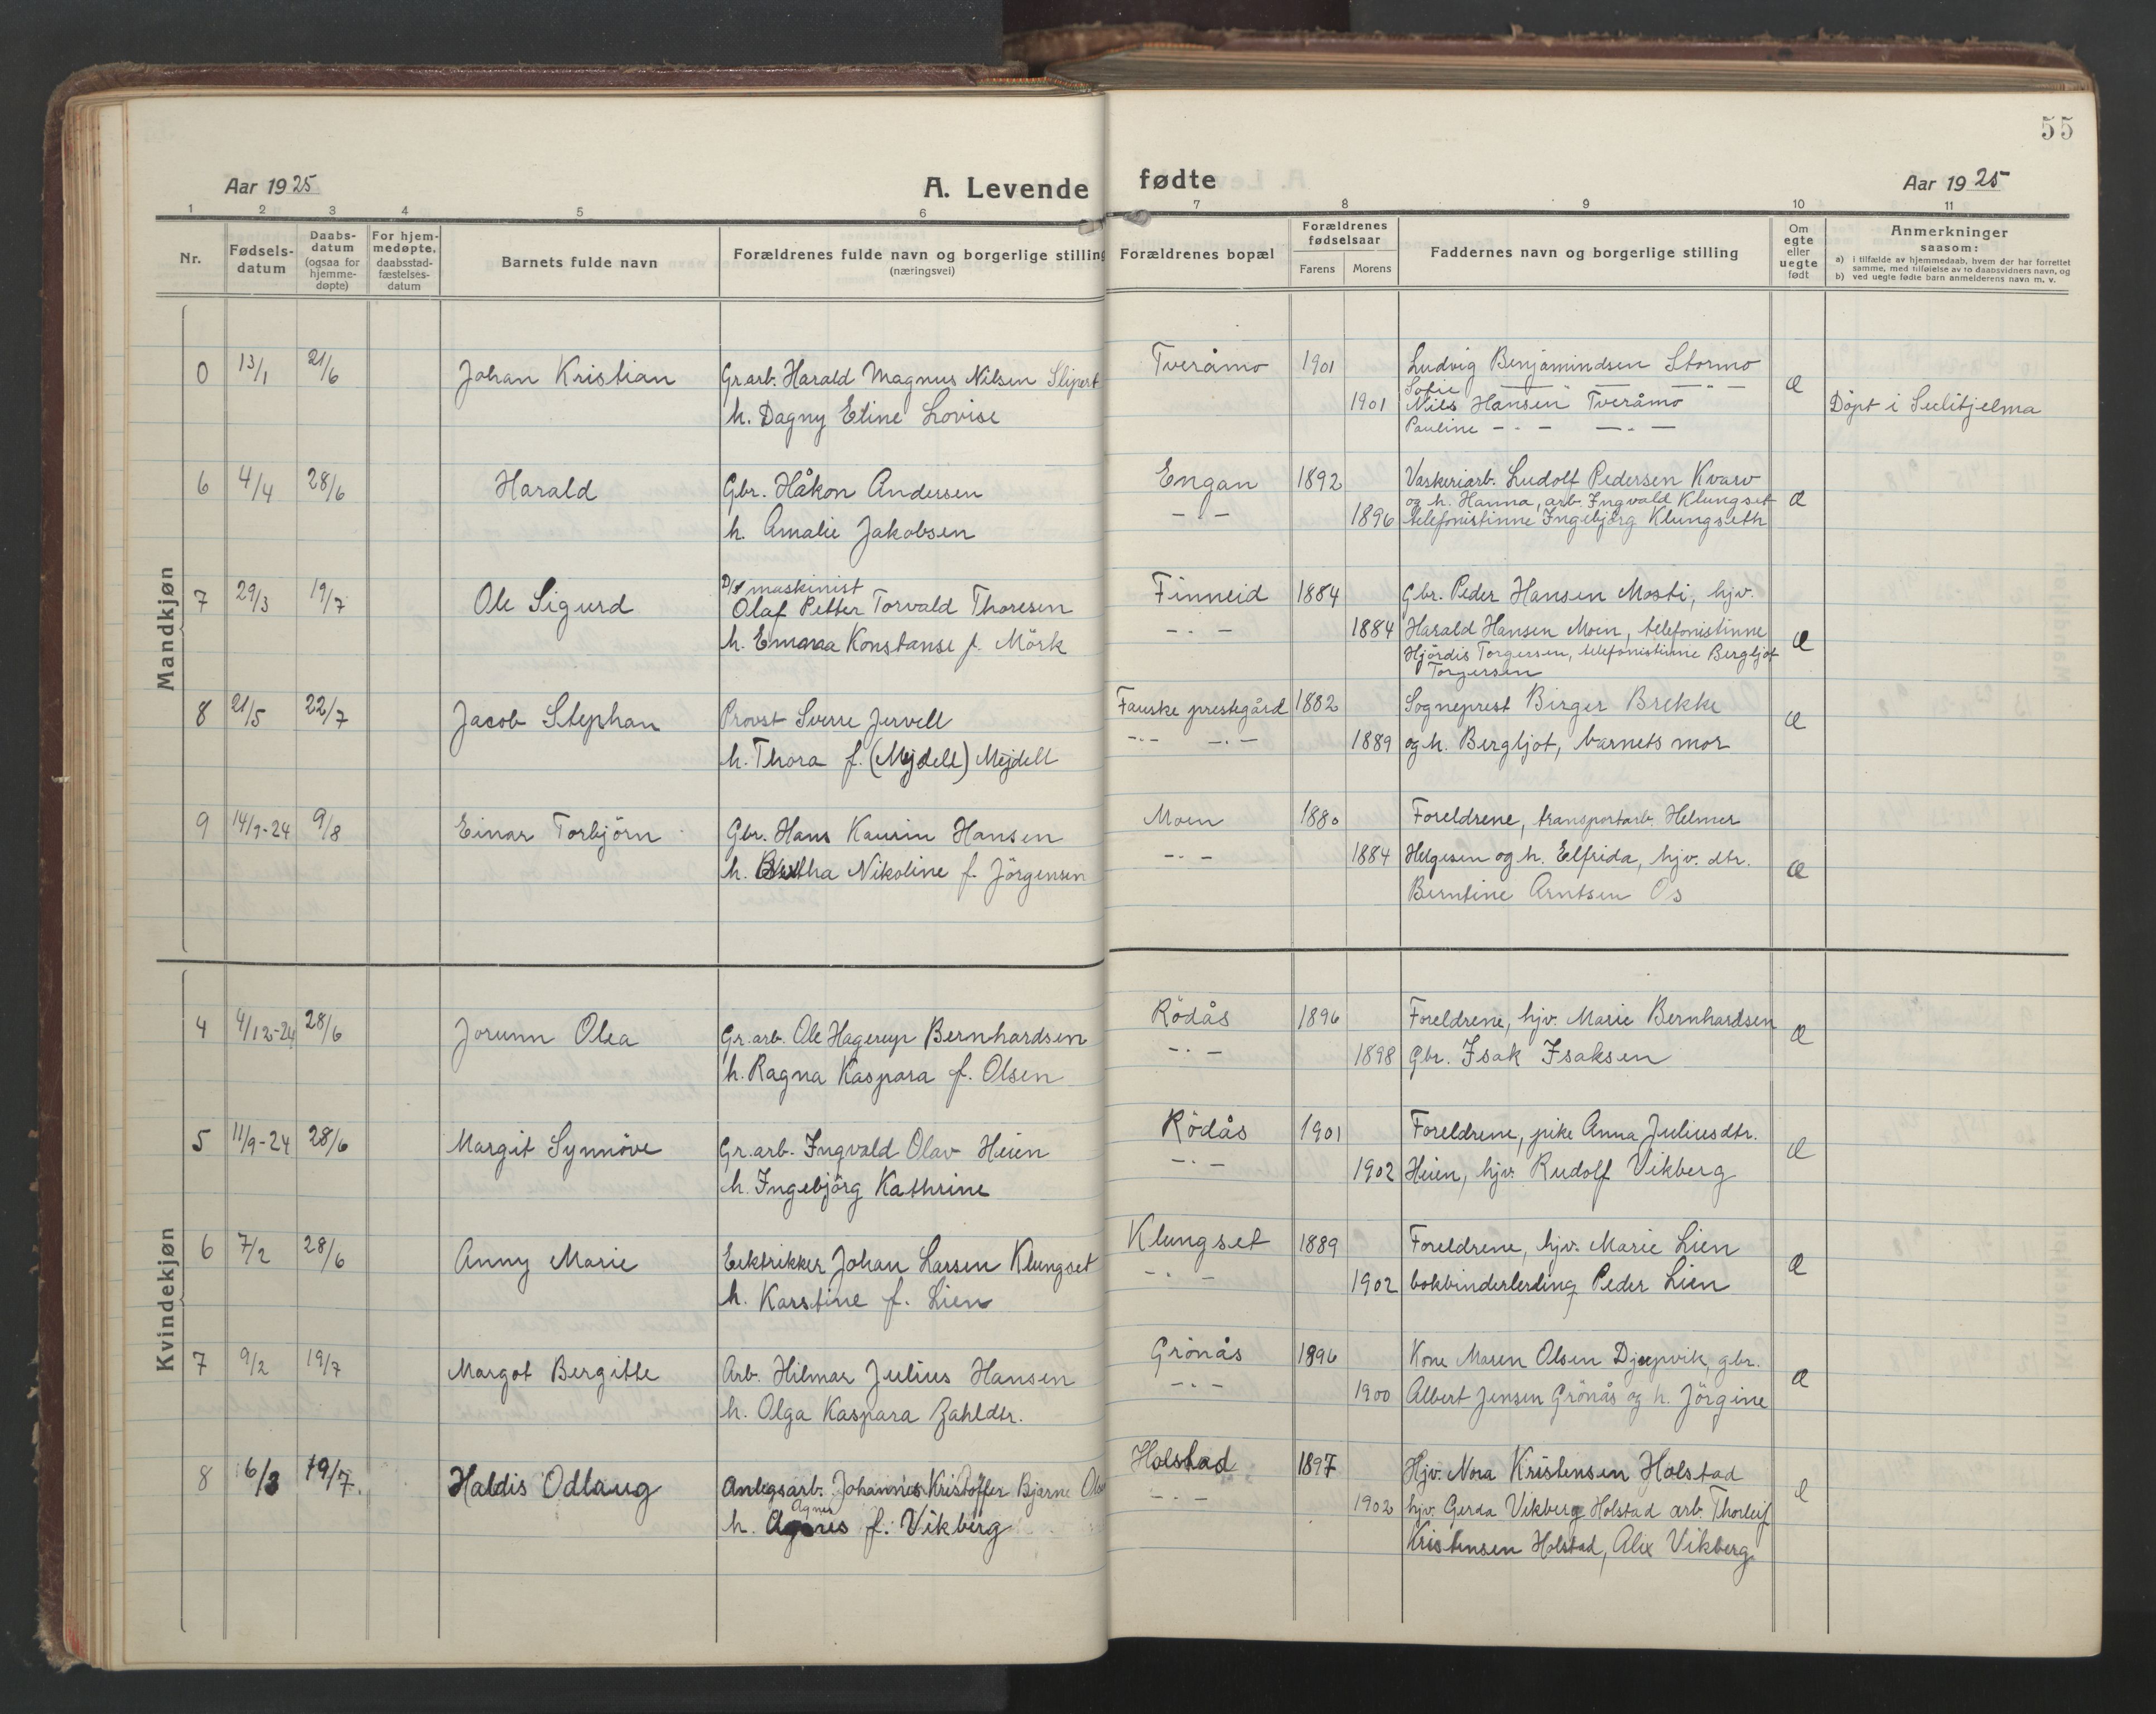 55
Aar 1925
A. Levende fødte
Aar 1925
1 2 3 4 5 6 7 8 9 10 11
Nr.
Fødsels-
datum
Daabs-
datum
(ogsaa for
hjemme-
døpte)
For hjem-
medøpte.
daabsstad-
fæstelses-
datum
Barnets fulde navn
Forældrenes fulde navn og borgerlige stilling
(næringsvei)
Forældrenes bopæl
Forældrenes
fødselsaar
Farens Morens
Faddernes navn og borgerlige stilling
Om
egte
eller
uegte
født
Anmerkninger
saasom:
a) i tilfælde av hjemmedaab, hvem der har forrettet
samme, med tilføielse av to daabsvidners navn, og
b) ved uegte fødte barn anmelderens navn m. v.
Mandkjøn
0 13/1 21/6 Johan Kristian
Gr.arb. Harald Magnus Nilsen Slipert
h. Dagny Eline Lovise
Tveråmo 1901
1901
Ludvig Benjamindsen Stormo
Sofie — " — — " —
Nils Hansen Tveråmo
Pauline — . — — . —
Æ
Döpt i Sulitjelma
6 4/4 28/6 Harald
Gbr. Håkon Andersen
h. Amalie Jakobsen
Engan 1892
— . — 1896
Vaskeriarb. Ludolf Pedersen Kvarv
og h. Hanna, arb. Ingvald Klungset
telefonistinne Ingebjörg Klungseth
Æ
7 29/3 19/7 Ole Sigurd
D/S maskinist
Olaf Petter Torvald Thoresen
h. Emma Konstanse f. Mörk
Finneid 1884
— . — 1884
Gbr. Peder Hansen Mosti, hjv.
Harald Hansen Moen, telefonistinne
Hjördis Torgersen, telefonistinne Bergljot
Torgersen
Æ
8 21/5 22/7 Jacob Stephan
Provst Sverre Jervell
h. Thora f. (Mejdell) Mejdell
Fauske prestegård 1882
— . — — . — 1889
Sogneprest Birger Brekke
og h. Bergljot, barnets mor
Æ
9 14/9-24 9/8 Einar Torbjörn
Gbr. Hans Kaurin Hansen
h. Nikoline f. Jörgensen
Moen 1880
— . — 1884
Foreldrene, transportarb. Helmer
Helgesen og h. Elfrida, hjv. dtr.
Berntine Arntsen Os
Æ
Kvindekjøn
4 4/12-24 28/6 Jorunn Olea
Gr.arb. Ole Hagerup Bernhardsen
h. Ragna Kaspara f. Olsen
Rödås 1896
— . — 1898
Foreldrene, hjv. Marie Bernhardsen
Gbr. Isak Isaksen
Æ
5 11/9-24 28/6 Margit Synnöve
Gr.arb. Ingvald Olav Heien
h. Ingebjörg Kathrine
Rödås 1901
— . — 1902
Foreldrene, pike Anna Juliusdtr.
Heien, hjv. Rudolf Vikberg
Æ
6 7/2 28/6 Anny Marie
Eektrikker Johan Larsen Klungset
h. Karstine f. Lien
Klungset 1889
— . — 1902
Foreldrene, hjv. Marie Lien
bokbinderlerling Peder Lien
Æ
7 9/2 19/7 Margot Bergitte
Arb. Hilmar Julius Hansen
h. Olga Kaspara Zahldtr.
Grönås 1896
— . — 1900
Kone Maren Olsen Djupvik, gbr.
Albert Jensen Grönås og h. Jörgine
Æ
8 6/3 19/7. Haldis Odlaug
Anlegsarb. Johannes Kristoffer Bjarne
Agnes
h. Agnes f. Vikberg
Holstad 1897
— . — 1902
Hjv. Nora Kristensen Holstad
hjv. Gerda Vikberg Holstad arb. Thorleif
Kristensen Holstad, Alex Vikberg